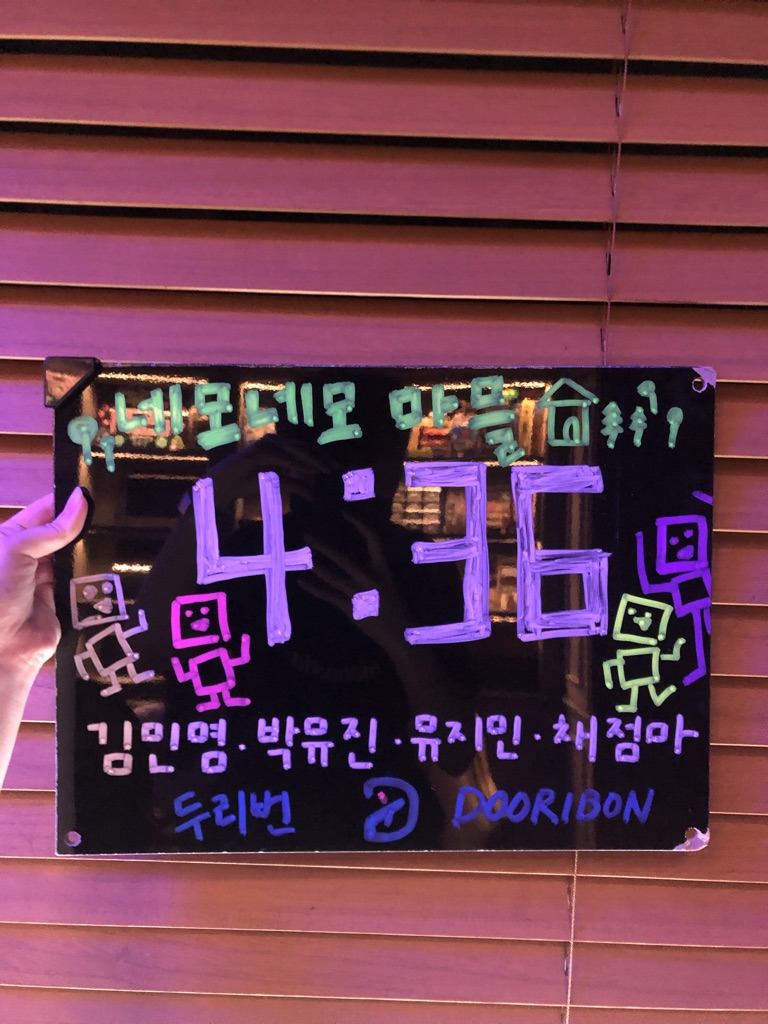 네모네모 마믈
4:36
김민염·박뮤진·뮤지민·채점마
두리번 DOORIBON